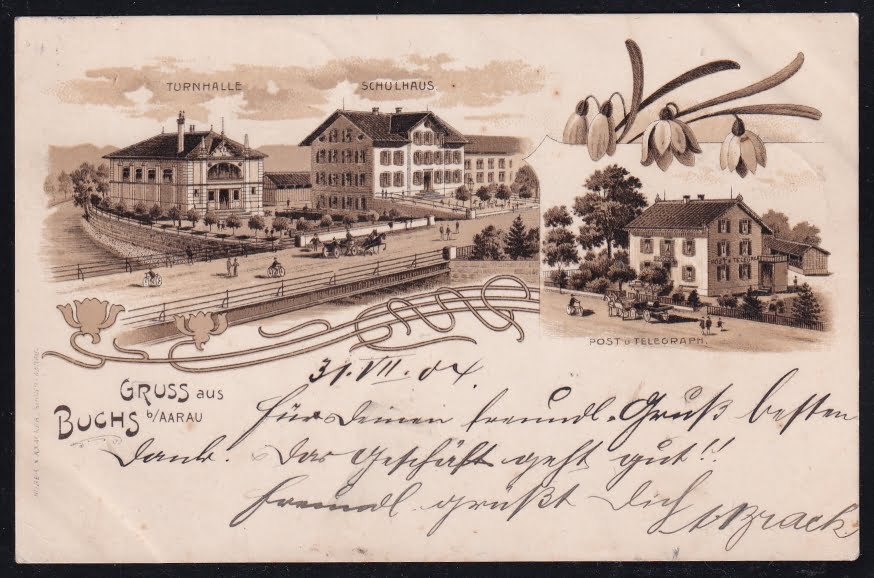 TURNHALLE
SCHULHAUS.
POST U TELEGRAPH.
GRUSS aus
BUCHS b/AARAU
31. VII. 04.
für Deinen freundl. Gruß besten
Dank. Das Geschäft geht gut!!
Freundl grüßt Dich